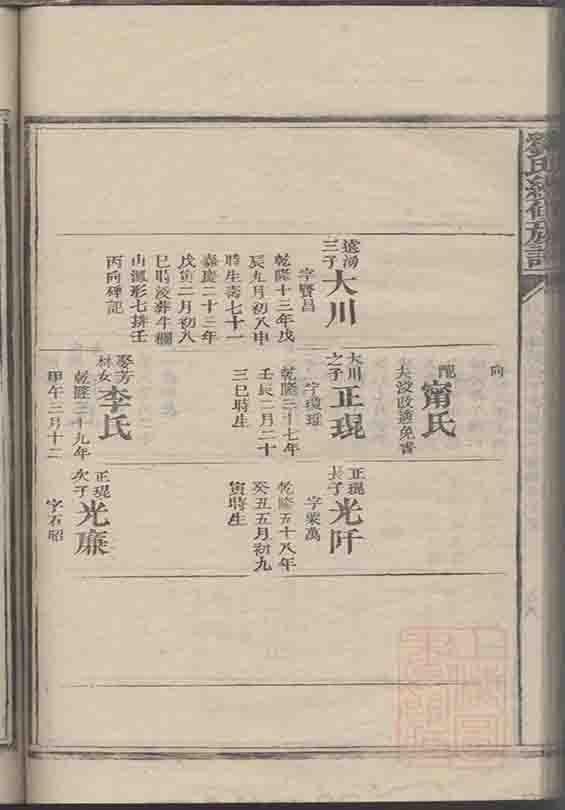 劉氏續修族譜
向
配甯氏
夫没改適免書
遠湯三子大川
字賢昌
乾隆十三年戊
辰九月初八申
時生壽七十一
嘉慶二十三年
戊寅二月初八
巳時没葬牛欄
山獅形七排壬
丙向碑記
大川之子正琨
字璞瑶
乾隆三十七年
壬辰二月二十
三巳時生
娶芳林女李氏
乾隆三十九年
甲午三月十二
正琨長子光阡
字業萬
乾隆五十八年
癸丑五月初九
寅時生
正琨次子光廉
字石昭